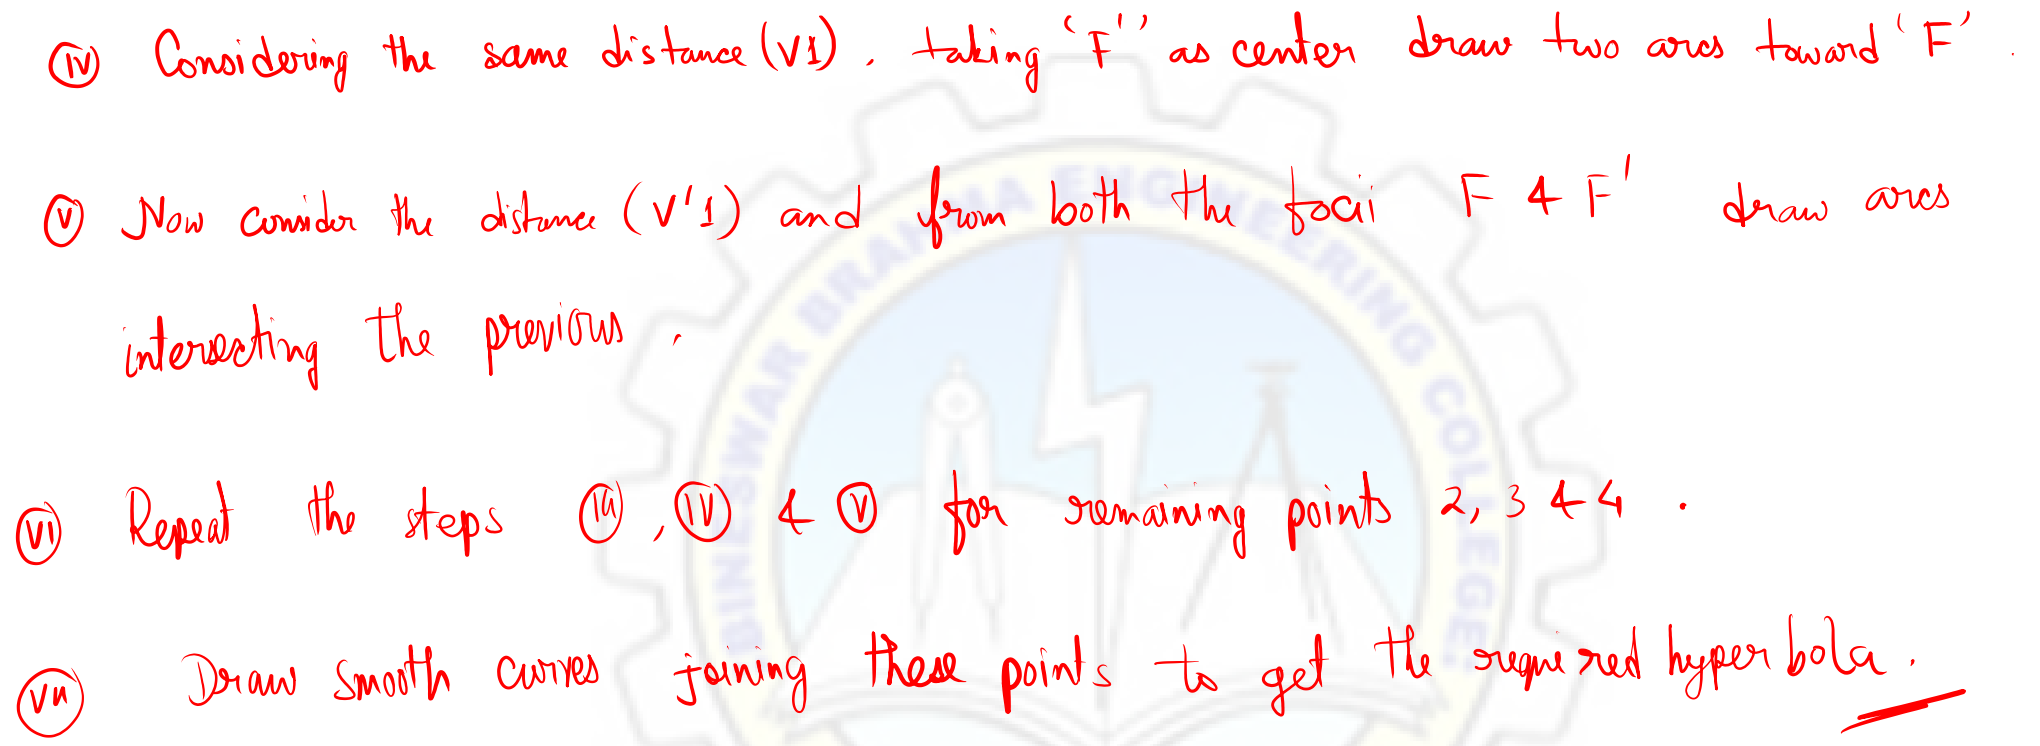 (iv) Considering the same distance (V1), taking 'F'' as center draw two arcs toward 'F'.
(v) Now consider the distance (V'1) and from both the focii F & F' draw arcs
intersecting the previous.
(vi) Repeat the steps (iii), (iv) & (v) for remaining points 2, 3 & 4.
(vii) Draw smooth curves joining these points to get the required hyperbola.
BINESWAR BRAHMA ENGINEERING COLLEGE